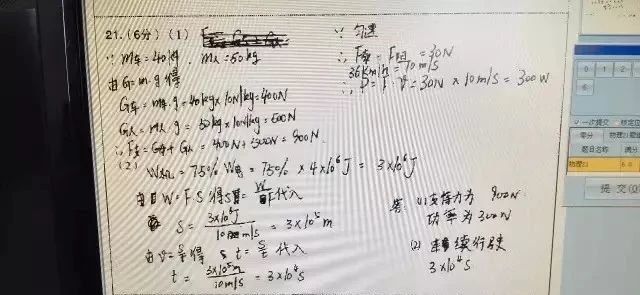 21.(6分)(1)
∵ m车=40kg, m人=50kg
由G=m·g得
G车=m车·g=40kg×10N/kg=400N
G人=m人·g=50kg×10N/kg=500N
∴F支=G车+G人=400N+500N=900N.
(2)
W机=75% W电=75%×4×10⁶J=3×10⁶J
由W=F·S得S=W/F代入
S=3×10⁶J/ =3×10⁵m
由v=s/t得 t= 代入
t=3×10⁵m/10m/s=3×10⁴s
∵匀速
∴F牵=F阻=30N
36km/h=10m/s
∴P=F·v=30N×10m/s=300W
答: (1)支持力为 900N
功率为300W
(2) 续行驶
3×10⁴s
0 1 2
6
一次提交
零分
物理21题
题目名称 满分
物理21 6.0
提交(Q